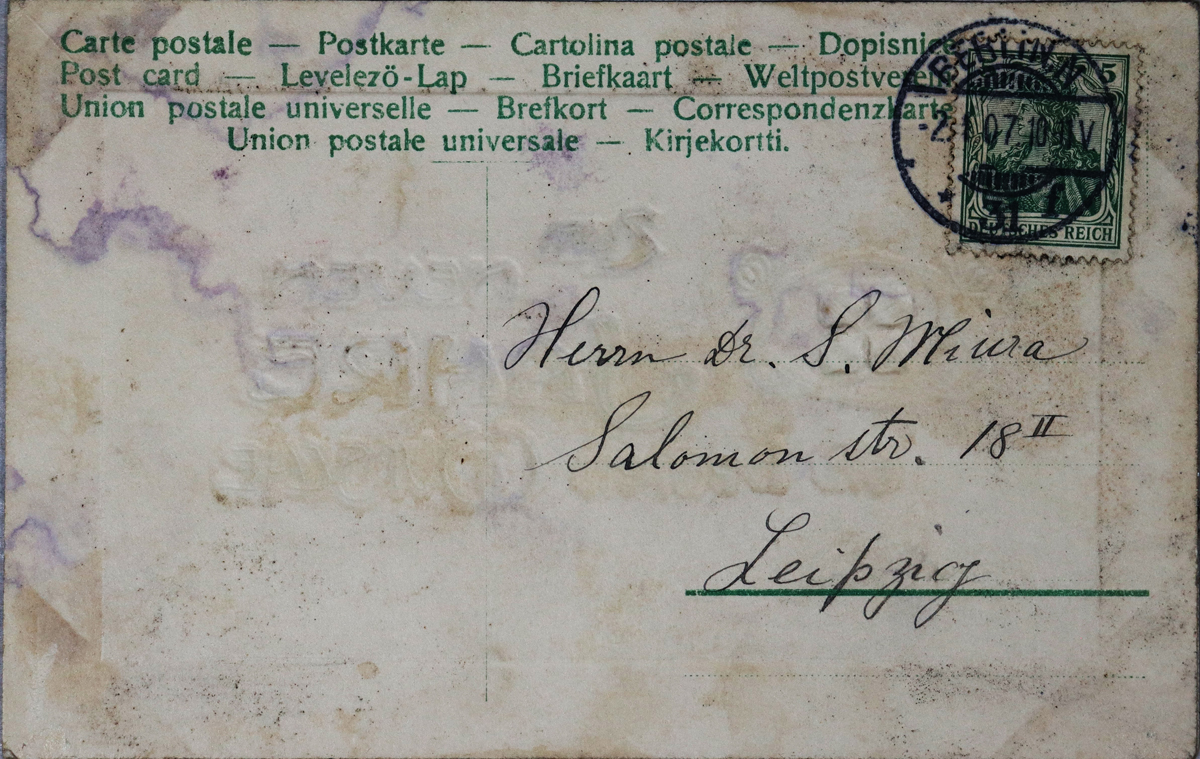 Carte postale — Postkarte — Cartolina postale — Dopisnice
Post card — Levelezö-Lap — Briefkaart — Weltpostverein
Union postale universelle — Brefkort — Correspondenzkarte
Union postale universale — Kirjekortti.
BERLIN N
31
5
DEUTSCHES REICH
Zum
NEUEN
JAHRE
Herrn Dr. S. Miura
Salomon str. 18 II
Leipzig